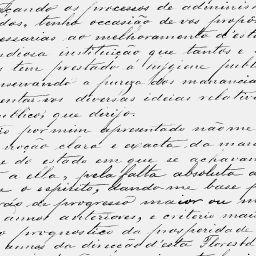 ficando os processos de administra
des, tenho occasião de vos propôr
essarias ao melhoramento d'est
ndiosa instituição que tantos e
s tem prestado á hygiene publ
nservando a pureza dos mananciae
entar-vos diversas ideias relativa
ublicos que dirijo.
io por mim apresentado não me
noção clara e exacta da mar
e do estado em que se achavam
a ella, pela falta absoluta a
e o espirito, dando-me base p
rão de progresso maior ou m
annos anteriores, e criterio mais
o prognostico da prosperidade
turnos da direcção d'esta Florest